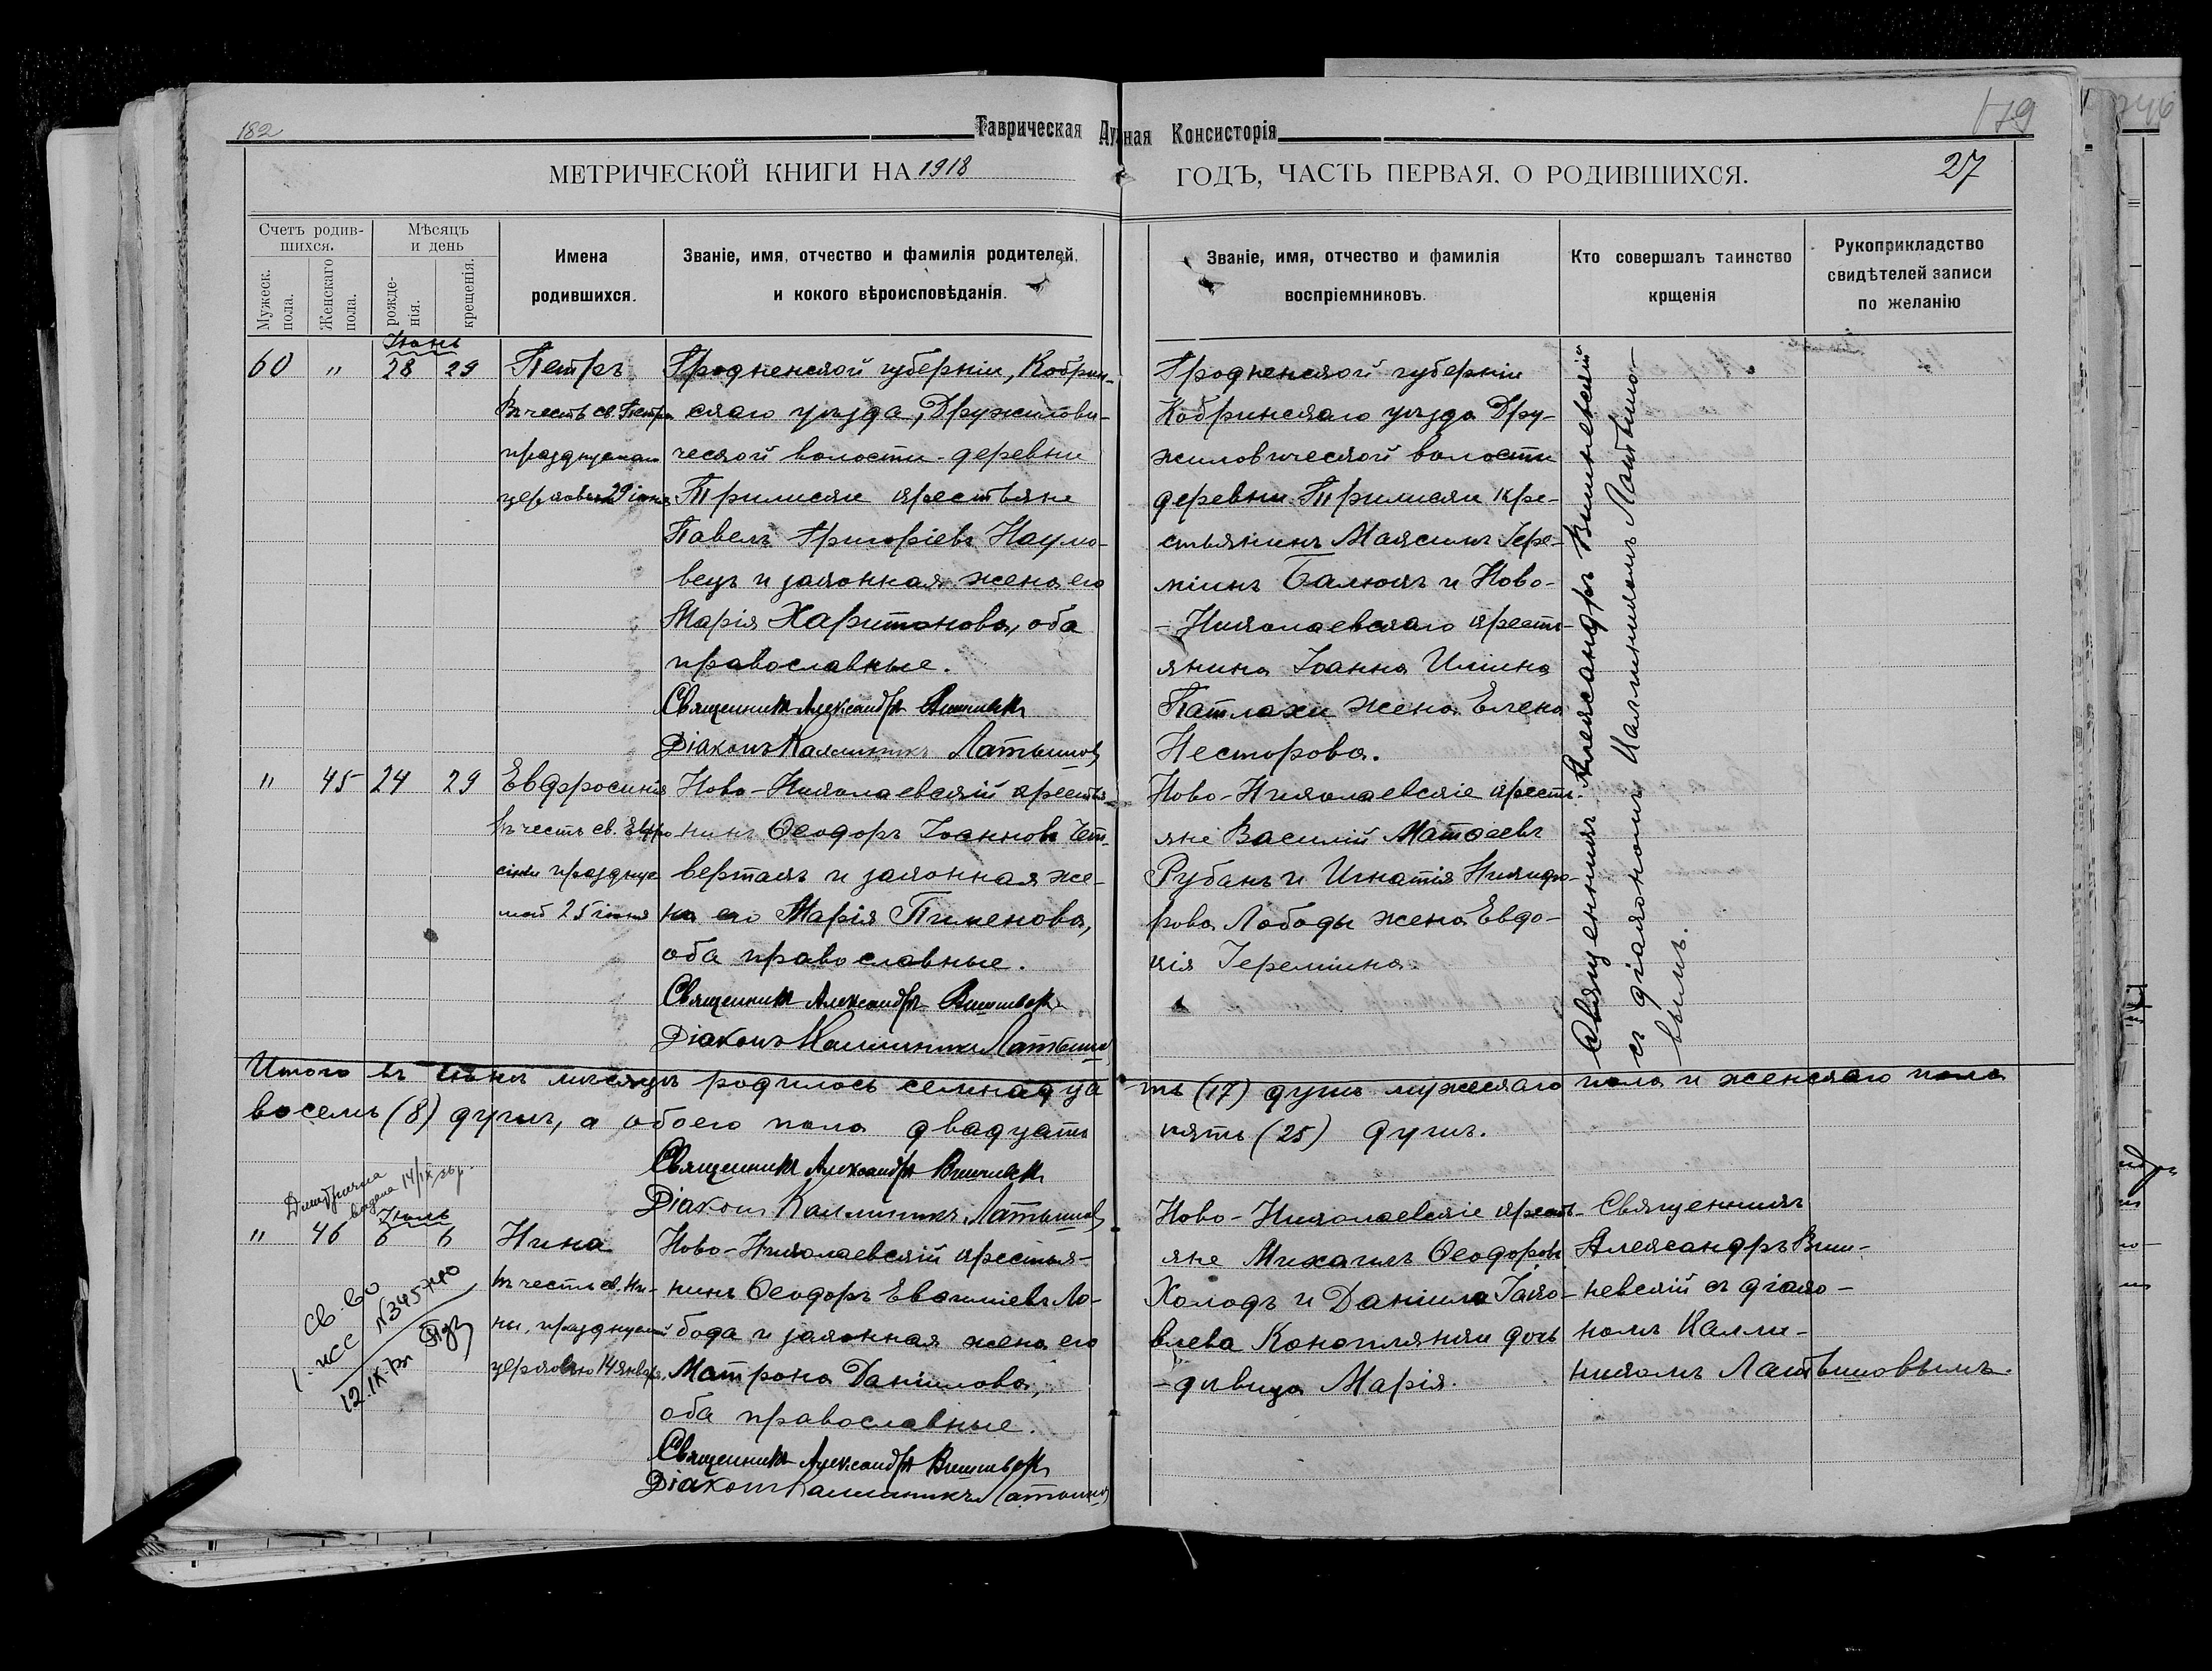 182
Таврическая Ду
ная Консисторія
179
МЕТРИЧЕСКОЙ КНИГИ НА 1918
ГОДЪ, ЧАСТЬ ПЕРВАЯ. О РОДИВШИХСЯ.
27
Счетъ родив-
шихся.
Мужеск.
пола.
Женскаго
пола.
Мѣсяцъ
и день
рожде-
нія.
крещенія.
Имена
родившихся.
Званіе, имя, отчество и фамилія родителей,
и кокого вѣроисповѣданія.
Званіе, имя, отчество и фамилія
воспріемниковъ.
Кто совершалъ таинство
крщенія
Рукоприкладство
свидѣтелей записи
по желанію
Іюнь
60 " 28 29
Петръ
Въ честь св. Петра
празднуемаго
церковью 29 іюня
Гродненской губерніи, Кобрин-
скаго уѣзда, Дружилови-
ческой волости деревни
Прилиски крестьяне
Павелъ Григоріевъ Наумо-
вецъ и законная жена его
Марія Харитонова, оба
православные.
Священникъ Александръ Вишневск
Діаконъ Каллиникъ Латышов
Гродненской губерніи
Кобринскаго уѣзда Дру-
жиловической волости
деревни Прилиски кре-
стьянинъ Максимъ Іере-
міинъ Балюкъ и Ново-
-Николаевскаго кресть-
янина Іоанна Иліина
Патлахи жена Елена
Несторова.
Священникъ Александръ Вишневскій
съ діакономъ Каллиникомъ Латышо-
вымъ.
" 45 24 29
Евфросинія
въ честь св. Евфро
синіи праздную
мой 25 іюня
Ново-Николаевскій крестья
нинъ Ѳеодоръ Іоанновъ Чет-
вертакъ и законная же-
на его Марія Пименова,
оба православные.
Священникъ Александръ Вишневск
Діаконъ Каллиникъ Латышов
Ново-Николаевскіе кресть-
яне Василій Матѳеевъ
Рубанъ и Игнатія Никифо-
рова Лободы жена Евдо-
кія Іереміина.
Итого въ іюнѣ мѣсяцѣ родилось семнадца
ть (17) душъ мужескаго пола и женскаго пола
восемь (8) душъ, а обоего пола двадцать
пять (25) душъ.
Священникъ Александръ Вишневск
Діаконъ Каллиникъ Латышов
выдана 14/IX
Іюль
" 46 6 6
Св-во
№345740
12.IX
Нина
въ честь св. Ни-
ны, празднуемой
церковью 14 января.
Ново-Николаевскій крестья-
нинъ Ѳеодоръ Евѳиміевъ Ло-
бода и законная жена его
Матрона Даніилова,
оба православные.
Священникъ Александръ Вишневск
Діаконъ Каллиникъ Латышов
Ново-Николаевскіе кресть-
яне Михаилъ Ѳеодоровъ
Холодъ и Даніила Іако-
влева Конопляники дочь
-дѣвица Марія.
Священникъ
Александръ Виш-
невскій съ діако-
номъ Калли-
никомъ Латышовымъ.